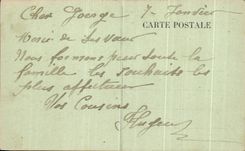 Cher George 7 Janvier
CARTE POSTALE
Merci de tes vœux
Nous formons pour toute la
famille les souhaits les
plus affectueux
Vos Cousins